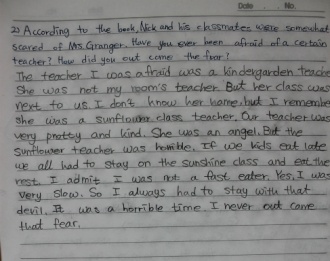 Date . . No.
2) According to the book, Nick and his classmates were somewhat
scared of Mrs. Granger. Have you ever been afraid of a certain
teacher? How did you out come the fear?
The teacher I was afraid was a kindergarden teache
She was not my room's teacher. But her class was
next to us. I don't know her name. but I remembe
she was a sunflower class teacher. Our teacher was
very prottsy and kind. She was an angel. But the
sunflower teacher was horrible. If we kids eat late
we all had to stay on the sunshine class and eat the
rest. I admit I was not a fast eater. Yes, I was
very slow. So I always had to stay with that
devil. It was a horrible time I never out came
that fear.